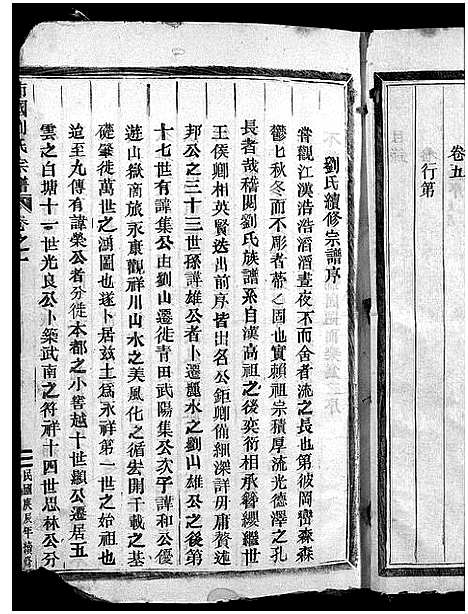 卷五
行第
劉氏續修宗譜序
嘗觀江漢浩浩滔滔晝夜不而舍者流之長也第彼岡巒森森
鬱七秋冬而不彫者蒂之固也實賴祖宗積厚流光德澤之孔
長者哉稽閱劉氏族譜系自漢高祖之後奕衍相承簪纓繼世
王侯卿相英賢迭出前序皆出名公鉅卿仙細深詳毋庸贅述
邦公之三十三世孫諱雄公者卜遷麗水之劉山雄公之後第
十七世有諱集公由劉山遷徙青田武陽集公次子諱和公優
遊山嶽南旅永康觀祥川山水之美風化之循宏開千載之基
礎肇徙萬世之鴻圖也遂卜居兹土為永祥第一世之始祖也
迨至九傳有諱榮公者分徙本都之小窖越十世顯公遷居五
雲之白塘十一世光良公卜築武南之符祥十四世思林公分
民國庚辰年續修